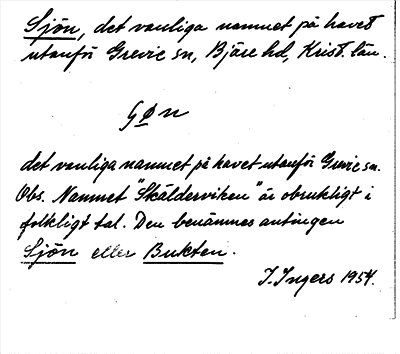 Sjön, det vanliga namnet på havet
utanför Grevie sn, Bjäre hd, Krist. län.
det vanliga namnet på havet utanför Grevie sn.
Obs. Namnet "Skälderviken" är obrukligt i
folkligt tal. Den benämnes antingen
Sjön eller Bukten.
I. Ingers 1954.